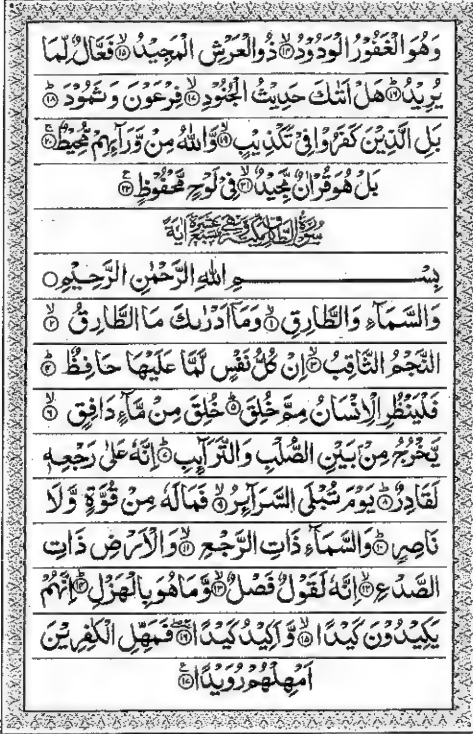 وَهُوَ الْغَفُوْرُ الْوَدُوْدُ ۙ﴿۱۴﴾ ذُو الْعَرْشِ الْمَجِيْدُ ۙ﴿۱۵﴾ فَعَّالٌ لِّمَا
يُرِيْدُ ؕ﴿۱۶﴾ هَلْ اَتٰىكَ حَدِيْثُ الْجُنُوْدِ ۙ﴿۱۷﴾ فِرْعَوْنَ وَ ثَمُوْدَ ؕ﴿۱۸﴾
بَلِ الَّذِيْنَ كَفَرُوْا فِيْ تَكْذِيْبٍ ۙ﴿۱۹﴾ وَّاللّٰهُ مِنْ وَّرَآئِهِمْ مُّحِيْطٌ ۚ﴿۲۰﴾
بَلْ هُوَ قُرْاٰنٌ مَّجِيْدٌ ۙ﴿۲۱﴾ فِيْ لَوْحٍ مَّحْفُوْظٍ ﴿۲۲﴾
سُوْرَةُ الطَّارِقِ مَكِّيَّةٌ وَّهِيَ سَبْعَ عَشْرَةَ اٰيَةً
بِسْمِ اللّٰهِ الرَّحْمٰنِ الرَّحِيْمِ ○
وَالسَّمَآءِ وَالطَّارِقِ ۙ﴿۱﴾ وَمَاۤ اَدْرٰىكَ مَا الطَّارِقُ ۙ﴿۲﴾
النَّجْمُ الثَّاقِبُ ۙ﴿۳﴾ اِنْ كُلُّ نَفْسٍ لَّمَّا عَلَيْهَا حَافِظٌ ؕ﴿۴﴾
فَلْيَنْظُرِ الْاِنْسَانُ مِمَّ خُلِقَ ؕ﴿۵﴾ خُلِقَ مِنْ مَّآءٍ دَافِقٍ ۙ﴿۶﴾
يَّخْرُجُ مِنْۢ بَيْنِ الصُّلْبِ وَالتَّرَآئِبِ ؕ﴿۷﴾ اِنَّهٗ عَلٰى رَجْعِهٖ
لَقَادِرٌ ؕ﴿۸﴾ يَوْمَ تُبْلَى السَّرَآئِرُ ۙ﴿۹﴾ فَمَا لَهٗ مِنْ قُوَّةٍ وَّلَا
نَاصِرٍ ؕ﴿۱۰﴾ وَالسَّمَآءِ ذَاتِ الرَّجْعِ ۙ﴿۱۱﴾ وَالْاَرْضِ ذَاتِ
الصَّدْعِ ۙ﴿۱۲﴾ اِنَّهٗ لَقَوْلٌ فَصْلٌ ۙ﴿۱۳﴾ وَّمَا هُوَ بِالْهَزْلِ ؕ﴿۱۴﴾ اِنَّهُمْ
يَكِيْدُوْنَ كَيْدًا ۙ﴿۱۵﴾ وَّاَكِيْدُ كَيْدًا ۚۖ﴿۱۶﴾ فَمَهِّلِ الْكٰفِرِيْنَ
اَمْهِلْهُمْ رُوَيْدًا ﴿۱۷﴾